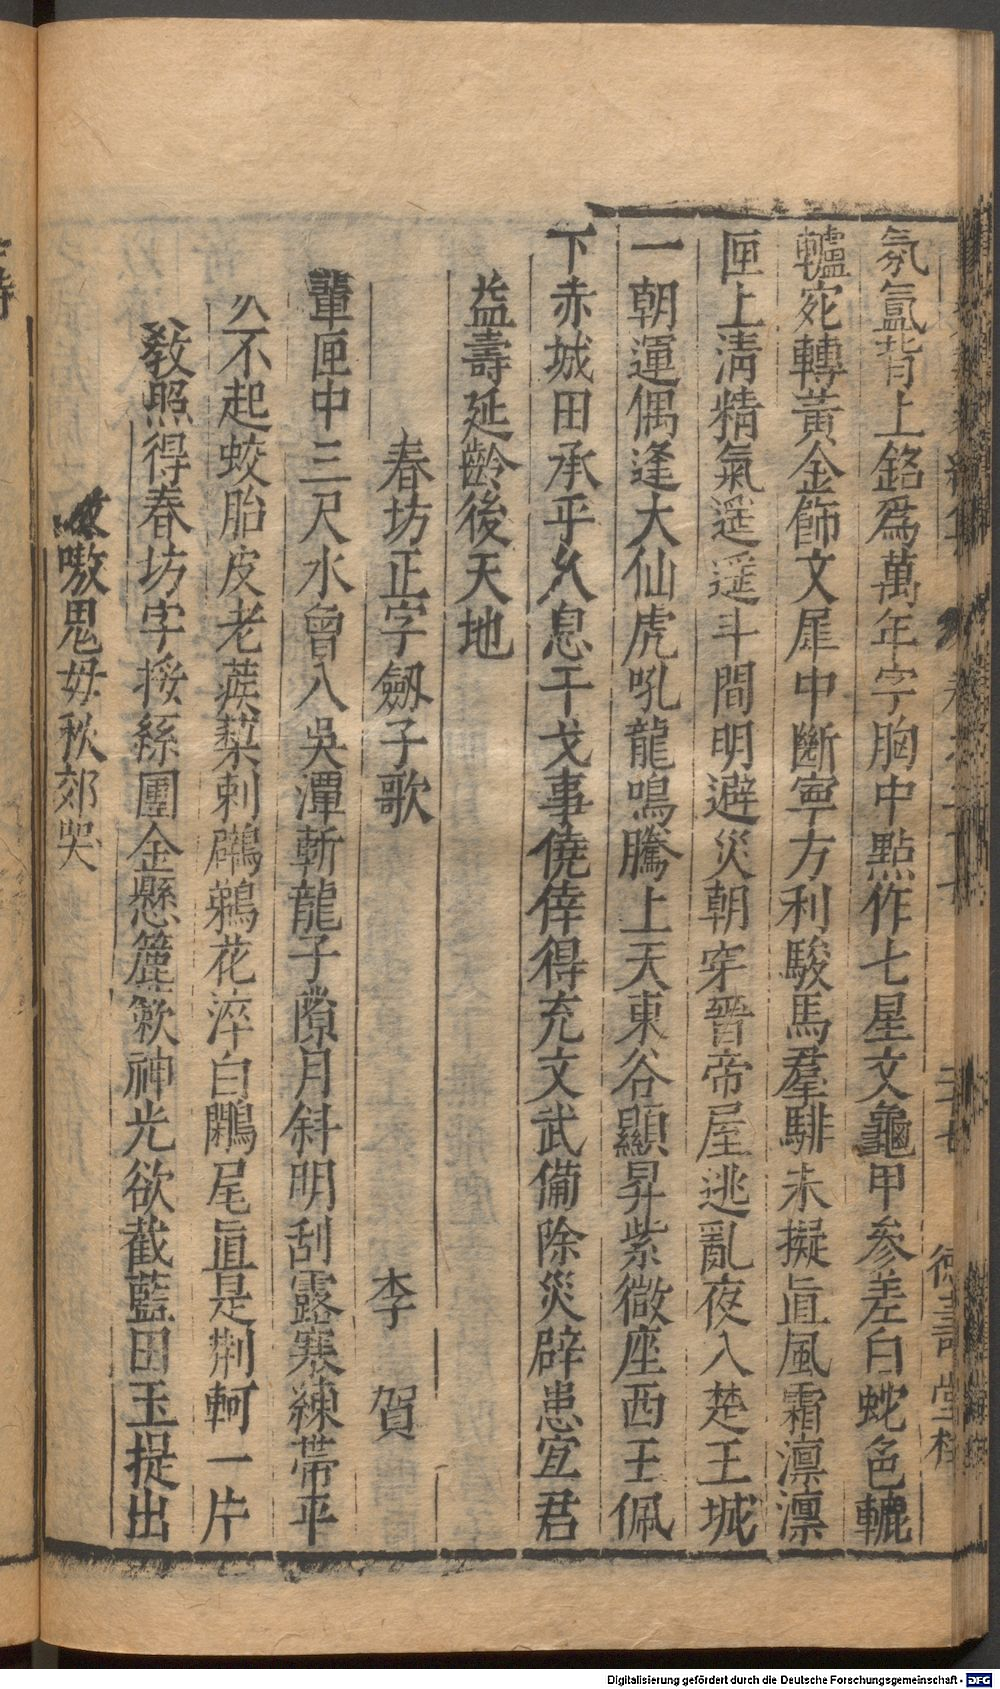 氛氳背上銘爲萬年字胸中點作七星文龜甲參差白蛇色轆
轤宛轉黃金飾文犀中斷寧方利駿馬羣騑未擬眞風霜凛凛
匣上淸精氣遥遥斗間明避災朝穿晉帝屋逃亂夜入楚王城
一朝運偶逢大仙虎吼龍鳴騰上天東谷顯昇紫微座西王佩
下赤城田承平久息干戈事僥倖得充文武備除災辟患宜君
益壽延齡後天地
春坊正字劒子歌 李賀
輩匣中三尺水曾入吳潭斬龍子隙月斜明刮露寒練帶平
不起蛟胎皮老蒺藜刺鸊鵜花淬白鷴尾眞是荆軻一片
敎照得春坊字挼絲團金懸簏簌神光欲截藍田玉提出
嗷鬼毋秋郊哭
德壽堂梓
Digitalisierung gefördert durch die Deutsche Forschungsgemeinschaft - DFG